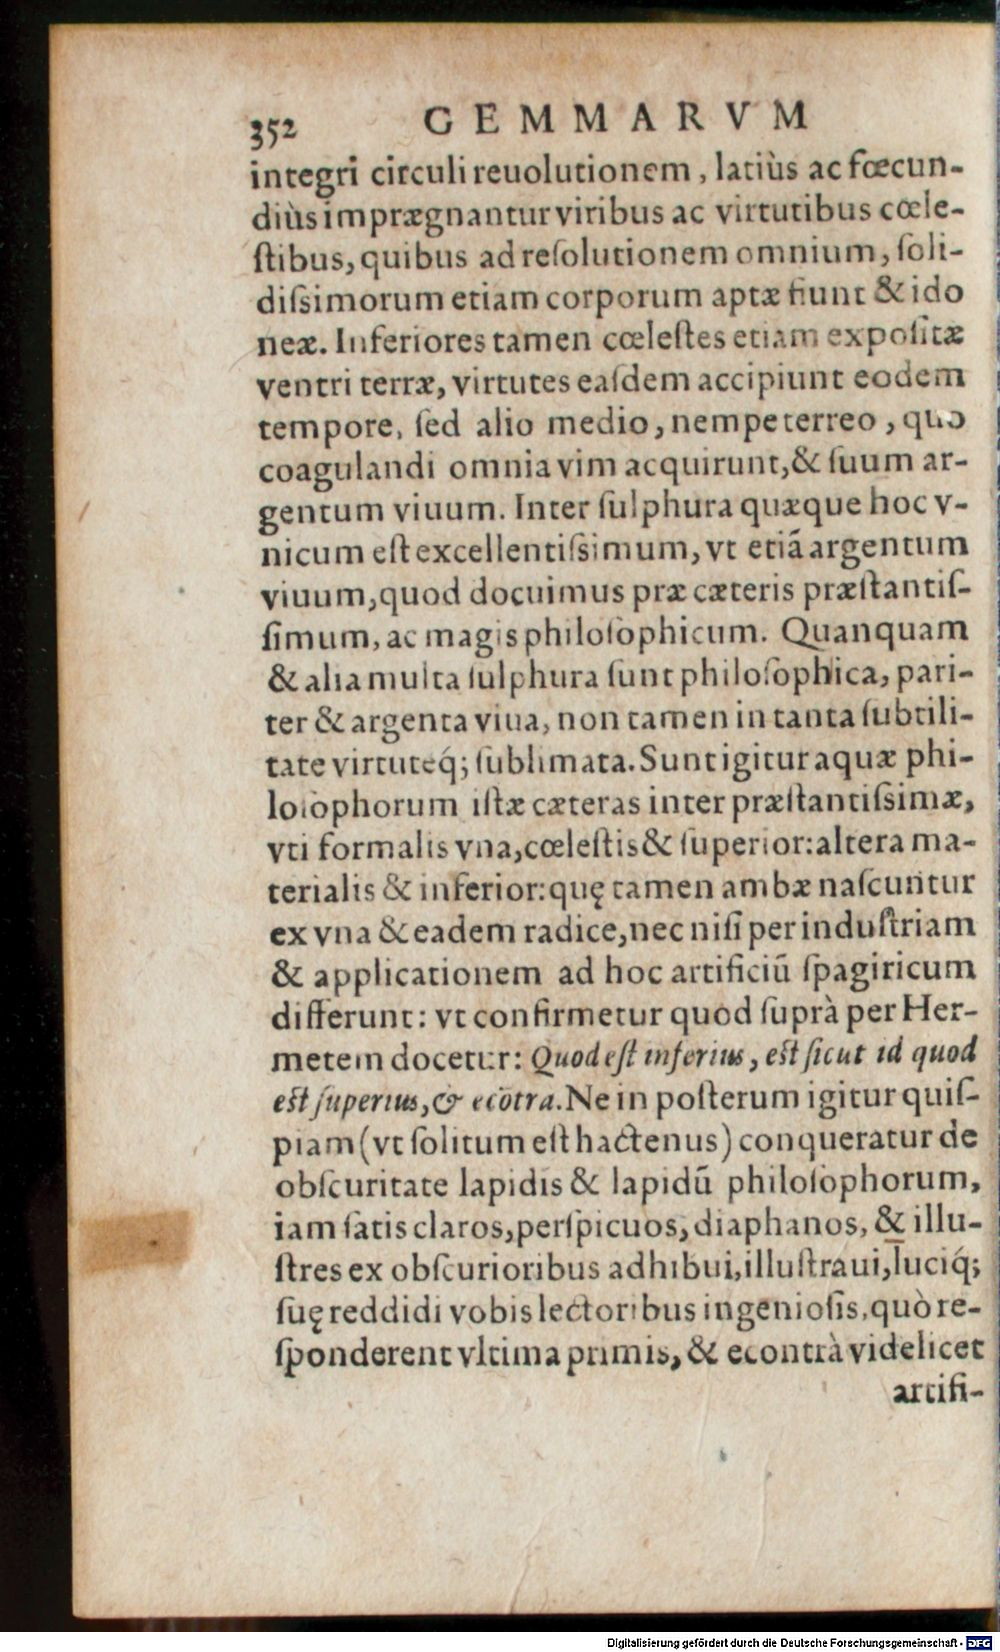 352 GEMMARVM
integri circuli reuolutionem, latiùs ac fœcun-
diùs imprægnantur viribus ac virtutibus cœle-
ſtibus, quibus ad reſolutionem omnium, ſoli-
diſsimorum etiam corporum aptæ fiunt & ido
neæ. Inferiores tamen cœleſtes etiam expoſitæ
ventri terræ, virtutes eaſdem accipiunt eodem
tempore, ſed alio medio, nempe terreo, quo
coagulandi omnia vim acquirunt, & ſuum ar-
gentum viuum. Inter ſulphura quæque hoc v-
nicum eſt excellentiſsimum, vt etiã argentum
viuum, quod docuimus præ cæteris præſtantiſ-
ſimum, ac magis philoſophicum. Quanquam
& alia multa ſulphura ſunt philoſophica, pari-
ter & argenta viua, non tamen in tanta ſubtili-
tate virtuteq́; ſublimata. Sunt igitur aquæ phi-
loſophorum iſtæ cæteras inter præſtantiſsimæ,
vti formalis vna, cœleſtis & ſuperior: altera ma-
terialis & inferior: quę tamen ambæ naſcuntur
ex vna & eadem radice, nec niſi per induſtriam
& applicationem ad hoc artificiũ ſpagiricum
differunt: vt confirmetur quod ſuprà per Her-
metem docetur: Quod eſt inferius, eſt ſicut id quod
eſt ſuperius, & ecõtra. Ne in poſterum igitur quiſ-
piam (vt ſolitum eſt hactenus) conqueratur de
obſcuritate lapidis & lapidũ philoſophorum,
iam ſatis claros, perſpicuos, diaphanos, & illu-
ſtres ex obſcurioribus adhibui, illuſtraui, luciq́;
ſuę reddidi vobis lectoribus ingenioſis, quò re-
ſponderent vltima primis, & econtrà videlicet
artifi-
Digitalisierung gefördert durch die Deutsche Forschungsgemeinschaft - DFG